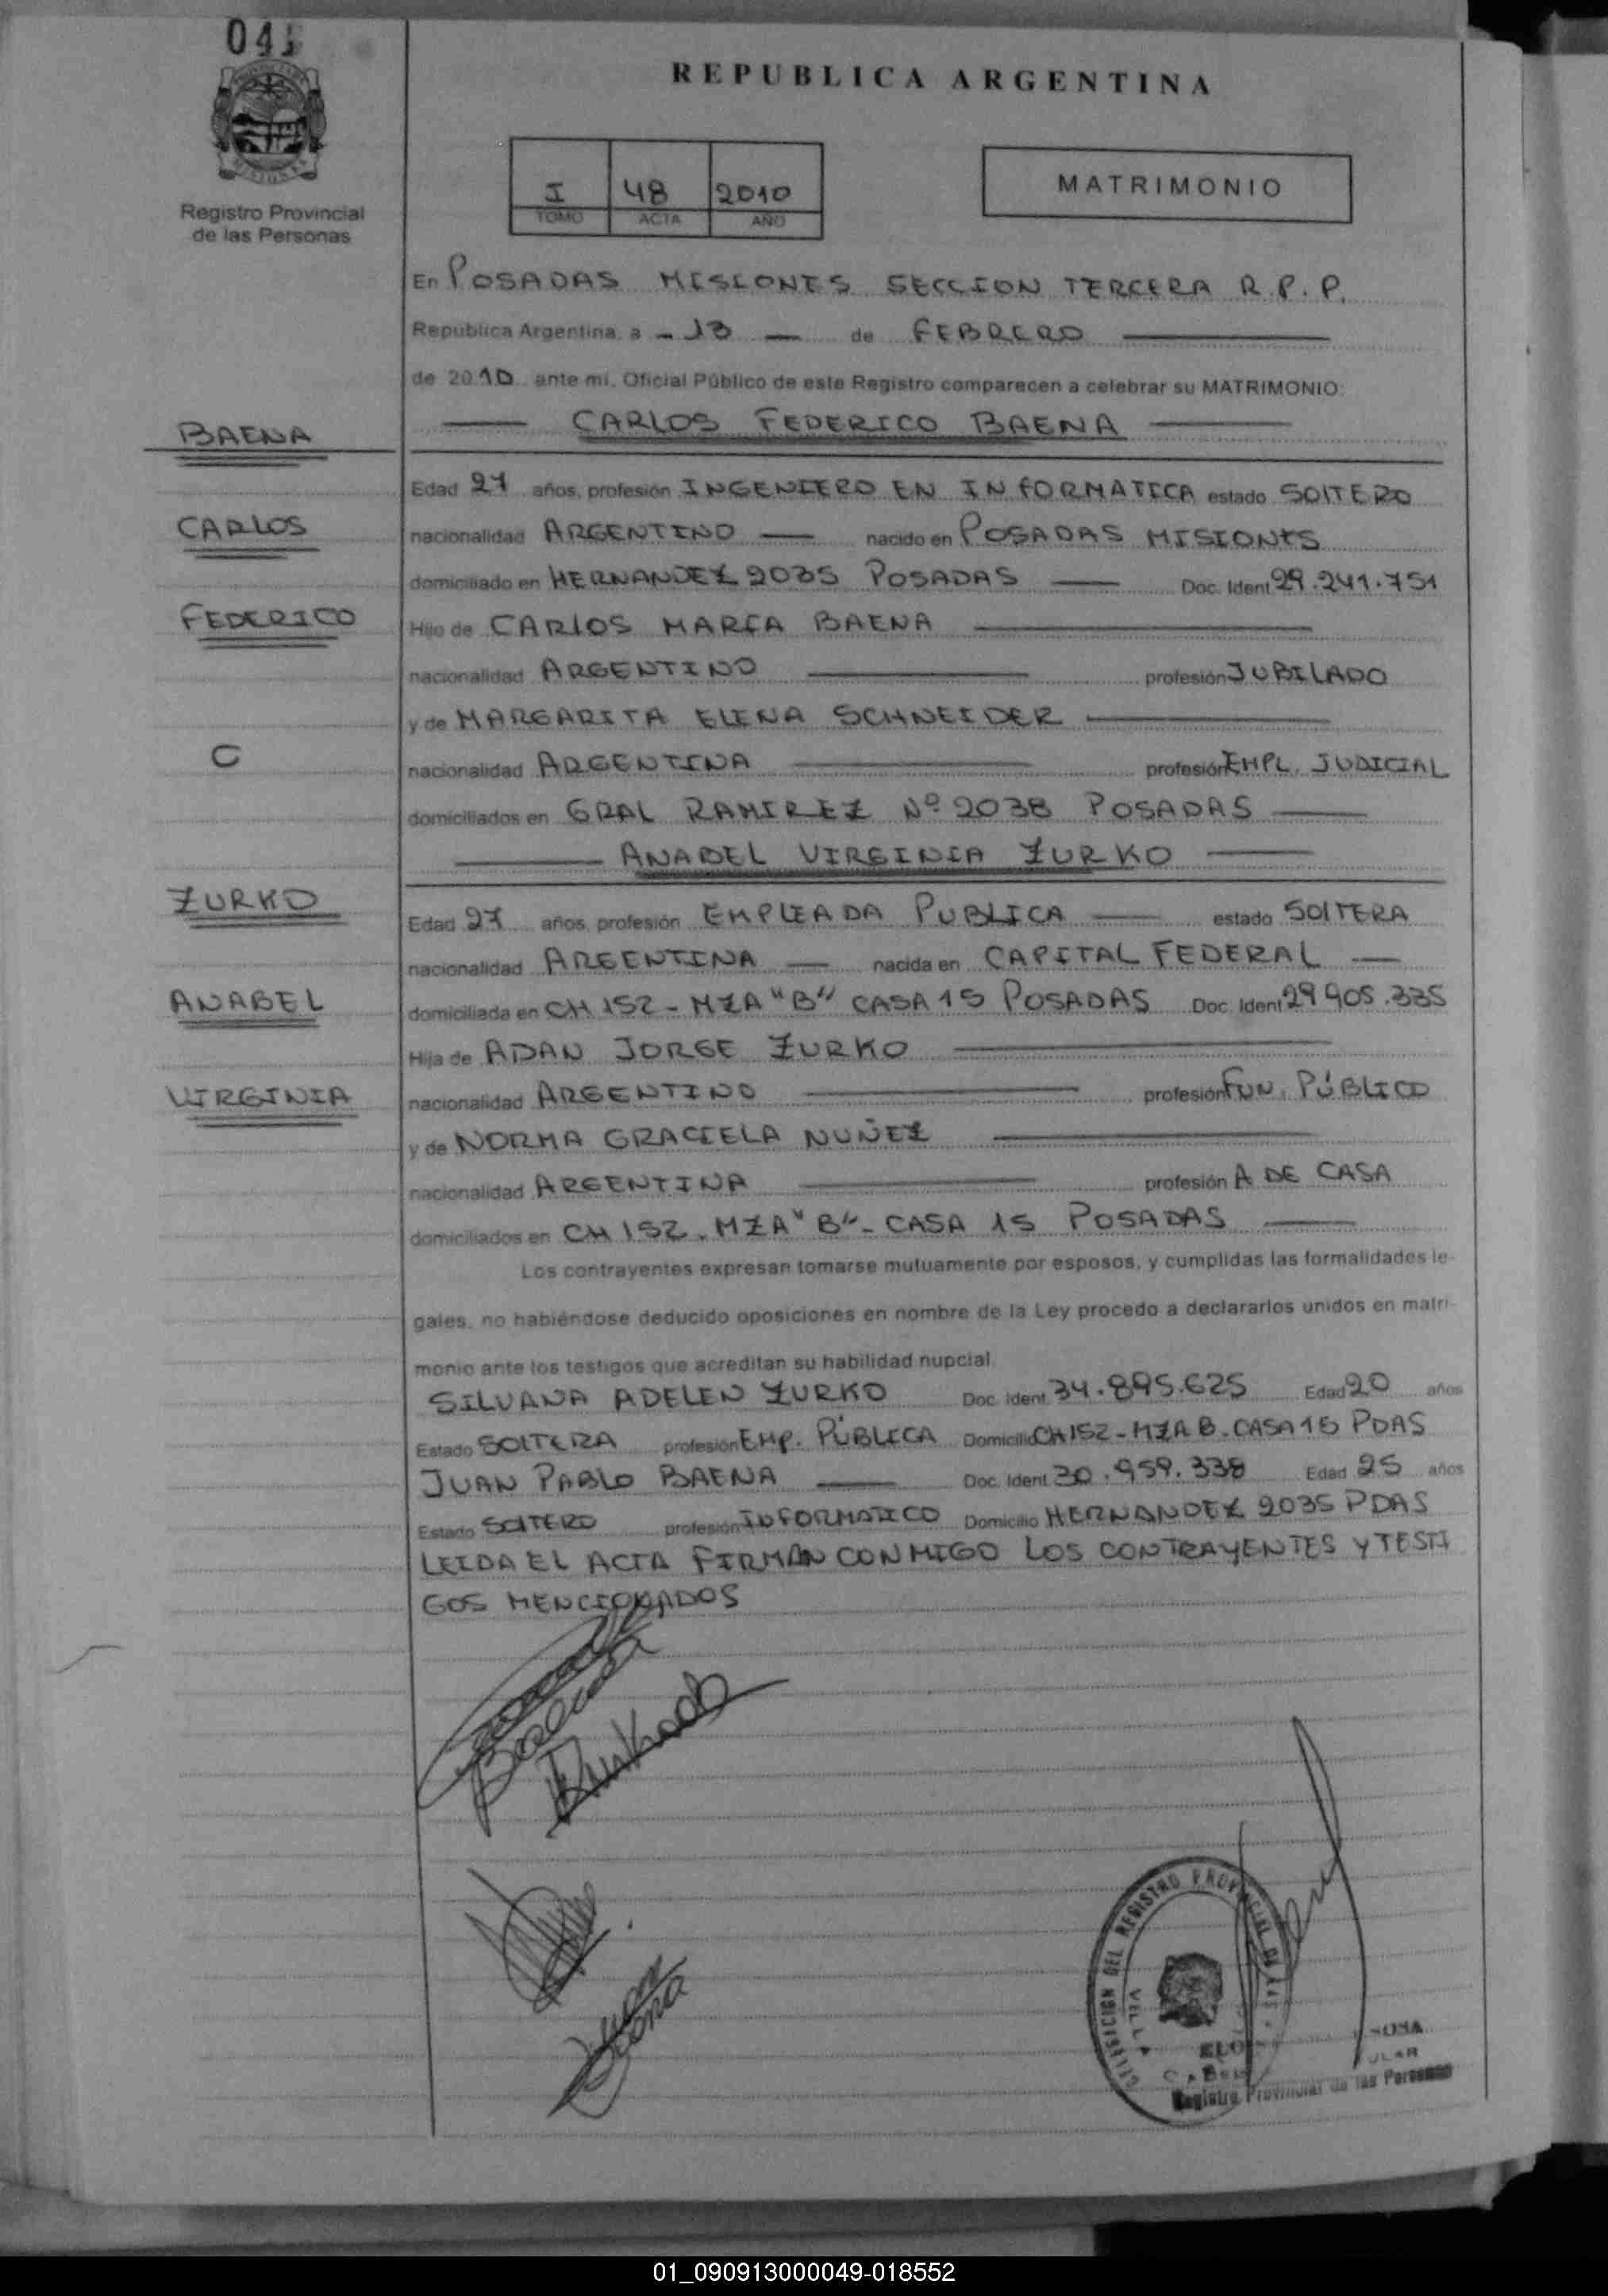 REPUBLICA ARGENTINA
Registro Provincial
de las Personas
I 48 2010
TOMO ACTA AÑO
MATRIMONIO
En POSADAS MISIONES SECCION TERCERA R.P.P.
Republica Argentina, a - 13 — de FEBRERO
de 2010 ante mi, Oficial Público de este Registro comparecen a celebrar su MATRIMONIO:
BAENA
CARLOS FEDERICO BAENA
Edad 27 años, profesión INGENIERO EN INFORMATICA estado SOLTERO
CARLOS
nacionalidad ARGENTINO — nacido en POSADAS MISIONES
domiciliado en HERNANDEZ 2035 POSADAS — Doc. Ident 29.241.751
FEDERICO
Hijo de CARLOS MARIA BAENA
nacionalidad ARGENTINO profesión JUBILADO
y de MARGARITA ELENA SCHNEIDER
C
nacionalidad ARGENTINA profesión EMPL. JUDICIAL
domiciliados en GRAL RAMIREZ Nº 2038 POSADAS
ANABEL VIRGINIA ZURKO
ZURKO
Edad 27 años, profesión EMPLEADA PUBLICA — estado SOLTERA
nacionalidad ARGENTINA — nacida en CAPITAL FEDERAL —
ANABEL
domiciliada en CH 152 - MZA "B" CASA 15 POSADAS Doc. Ident 29.905.335
Hija de ADAN JORGE ZURKO
VIRGINIA
nacionalidad ARGENTINO profesión FUN. PÚBLICO
y de NORMA GRACIELA NUÑEZ
nacionalidad ARGENTINA profesión A DE CASA
domiciliados en CH 152. MZA "B" - CASA 15 POSADAS
Los contrayentes expresan tomarse mutuamente por esposos, y cumplidas las formalidades le-
gales, no habiéndose deducido oposiciones en nombre de la Ley procedo a declararlos unidos en matri-
monio ante los testigos que acreditan su habilidad nupcial.
SILVANA ADELEN ZURKO Doc. Ident. 34.895.625 Edad 20 años
Estado SOLTERA profesión EMP. PÚBLICA Domicilio CH 152 - MZA B. CASA 15 PDAS
JUAN PABLO BAENA — Doc. Ident. 30.959.338 Edad 25 años
Estado SOLTERO profesión INFORMATICO Domicilio HERNANDEZ 2035 PDAS
LEIDA EL ACTA FIRMAN CONMIGO LOS CONTRAYENTES Y TESTI
GOS MENCIONADOS
DELEGACION DEL REGISTRO PROVINCIAL DE LAS
VILLA
Registro Provincial de las Personas
01_090913000049-018552